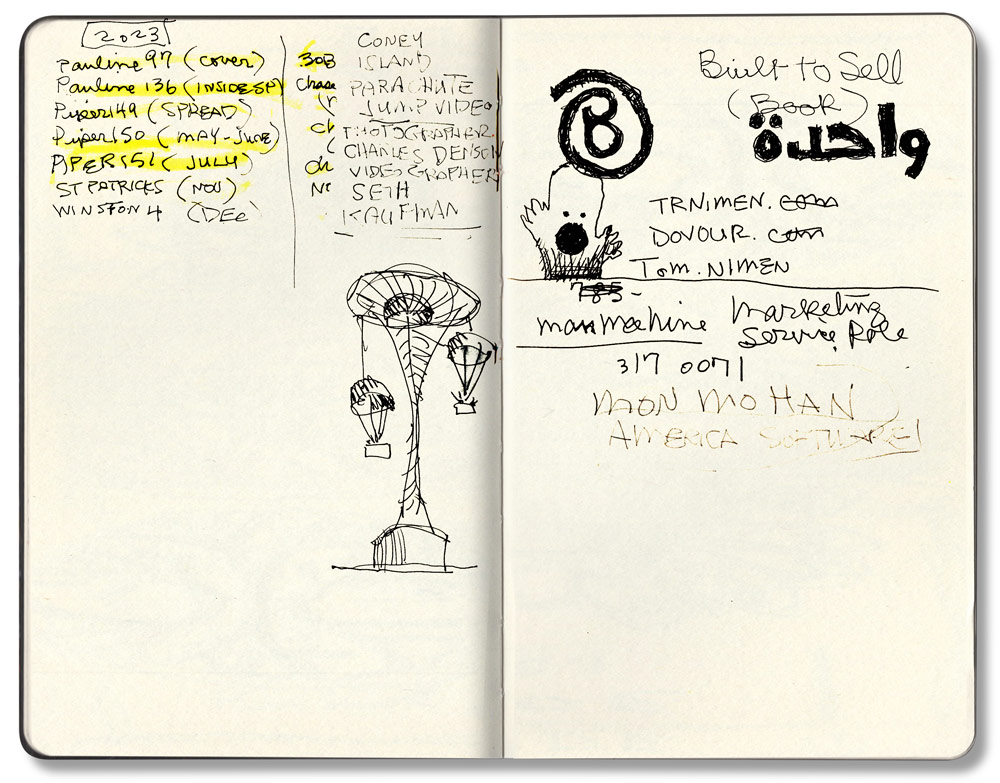 2023
Pauline 97 (COVER)
Pauline 136 (INSIDE SP)
Piper 149 (SPREAD)
Piper 150 (MAY-JUNE)
PIPER 151 (JULY)
ST PATRICKS (NOV)
WINSTON 4 (DEC)
30B
Chase
CONEY
ISLAND
PARACHUTE
JUMP VIDEO
PHOTOGRAPHER
CHARLES DENSON
VIDEOGRAPHER
SETH
KAUFMAN
Built to Sell
(BOOK)
B
واحدة
TRNIMEN. com
DOVOUR. com
Tom. NIMEN
785-
manmachine
Marketing
Service Role
317 0071
MON MOHAN
AMERICA SOFTWARE